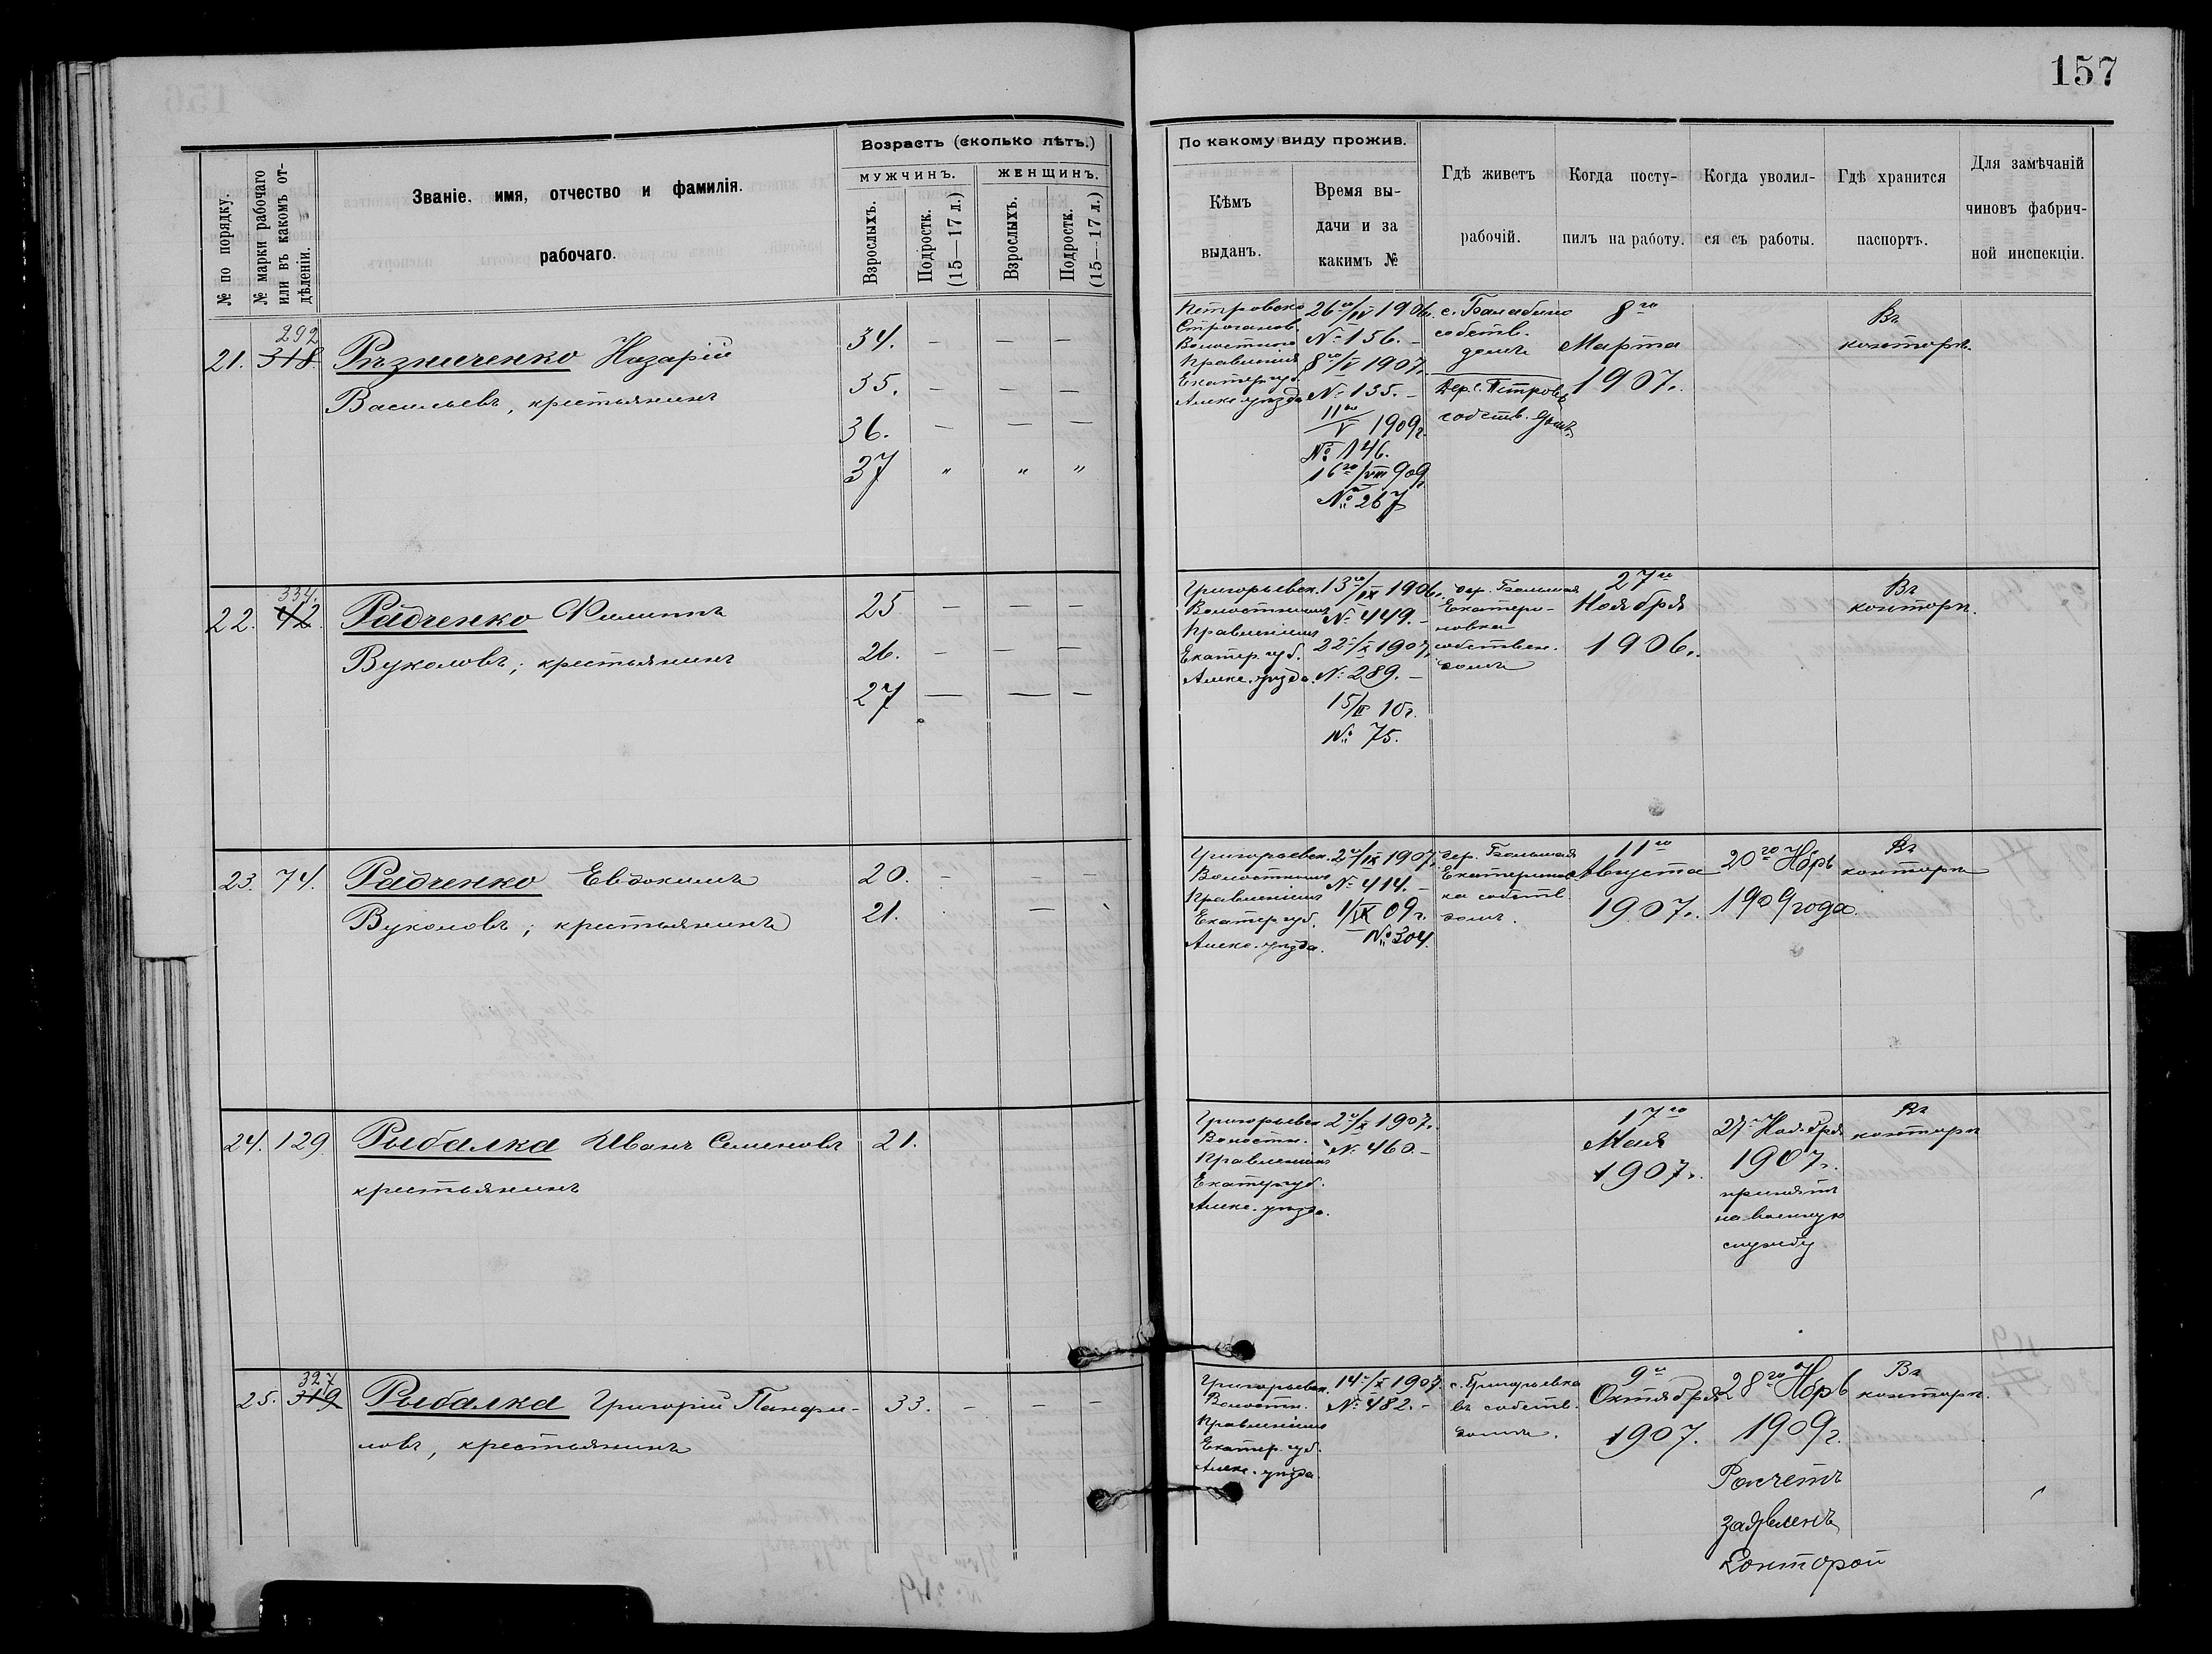 157
Возрастъ (сколько лѣтъ.)
МУЖЧИНЪ.
ЖЕНЩИНЪ.
№ по порядку.
№ марки рабочаго
или въ какомъ от-
дѣленіи.
Званіе, имя, отчество и фамилія.
рабочаго.
Взрослыхъ.
Подростк.
(15—17 л.)
Взрослыхъ.
Подростк.
(15—17 л.)
По какому виду прожив.
Кѣмъ
выданъ.
Время вы-
дачи и за
какимъ №
Гдѣ живетъ
рабочій.
Когда посту-
пилъ на работу.
Когда уволил-
ся съ работы.
Гдѣ хранится
паспортъ.
Для замѣчаній
чиновъ фабрич-
ной инспекціи.
292
21. 318. Рѣзниченко Назарій
Васильевъ, крестьянинъ
34. — — —
35. — — —
36. — — —
37 " " "
Петровско
Строганов.
Волостного
Правленія
Екатер. губ.
Алекс. уѣзда
26го/IV 1906г.
№ 156. —
8го/V 1907г.
№ 135. —
11го/V 1909г.
№ 146.
16го/VIII 909г.
№ 267
с. Балабино
собств.
домъ
Дер. с. Петровъ
собств. домъ
8го
Марта
1907г.
Въ
конторѣ.
334.
22. 42. Радченко Филиппъ
Вуколовъ, крестьянинъ
25 — — —
26. — — —
27 — — —
Григорьевск.
Волостнымъ
Правленіемъ
Екатер. губ.
Алекс. уѣзда.
13го/IX 1906г.
№ 449. —
22го/X 1907г.
№ 289. —
15/II 10г.
№ 75.
дер. Большая
Екатери-
новка
собствен.
домъ
27го
Ноября
1906г.
Въ
конторѣ.
23. 74. Радченко Евдокимъ
Вуколовъ; крестьянинъ
20. — — —
21. —
Григорьевск.
Волостнымъ
Правленіемъ
Екатер губ.
Алекс. уѣзда.
2го/IX 1907г.
№ 414. —
1/IX 09г.
№ 304.
дер. Большая
Екатеринов
ка собств.
домъ.
11го
Августа
1907г.
20го Нбрь
1909 года.
Въ
конторѣ
24. 129. Рыбалка Иванъ Семеновъ
крестьянинъ
21.
Григорьевск
Волостн.
Правленіемъ
Екатер губ.
Алекс. уѣзда.
2го/X 1907г.
№ 460. —
17го
Мая
1907г.
27 Ноября
1907г.
принятъ
на военную
службу
Въ
конторѣ
327
25. 319 Рыбалка Григорій Панфи-
ловъ, крестьянинъ
33. — — —
Григорьевск.
Волостн.
Правленіемъ
Екатер. губ.
Алекс. уѣзда.
14го/X 1907
№ 482. —
с. Григорьевка
въ собств.
домѣ.
9го
Октября
1907.
28го Нбрь
1909г.
Расчетъ
заявленъ
Конторой
Въ
конторѣ.